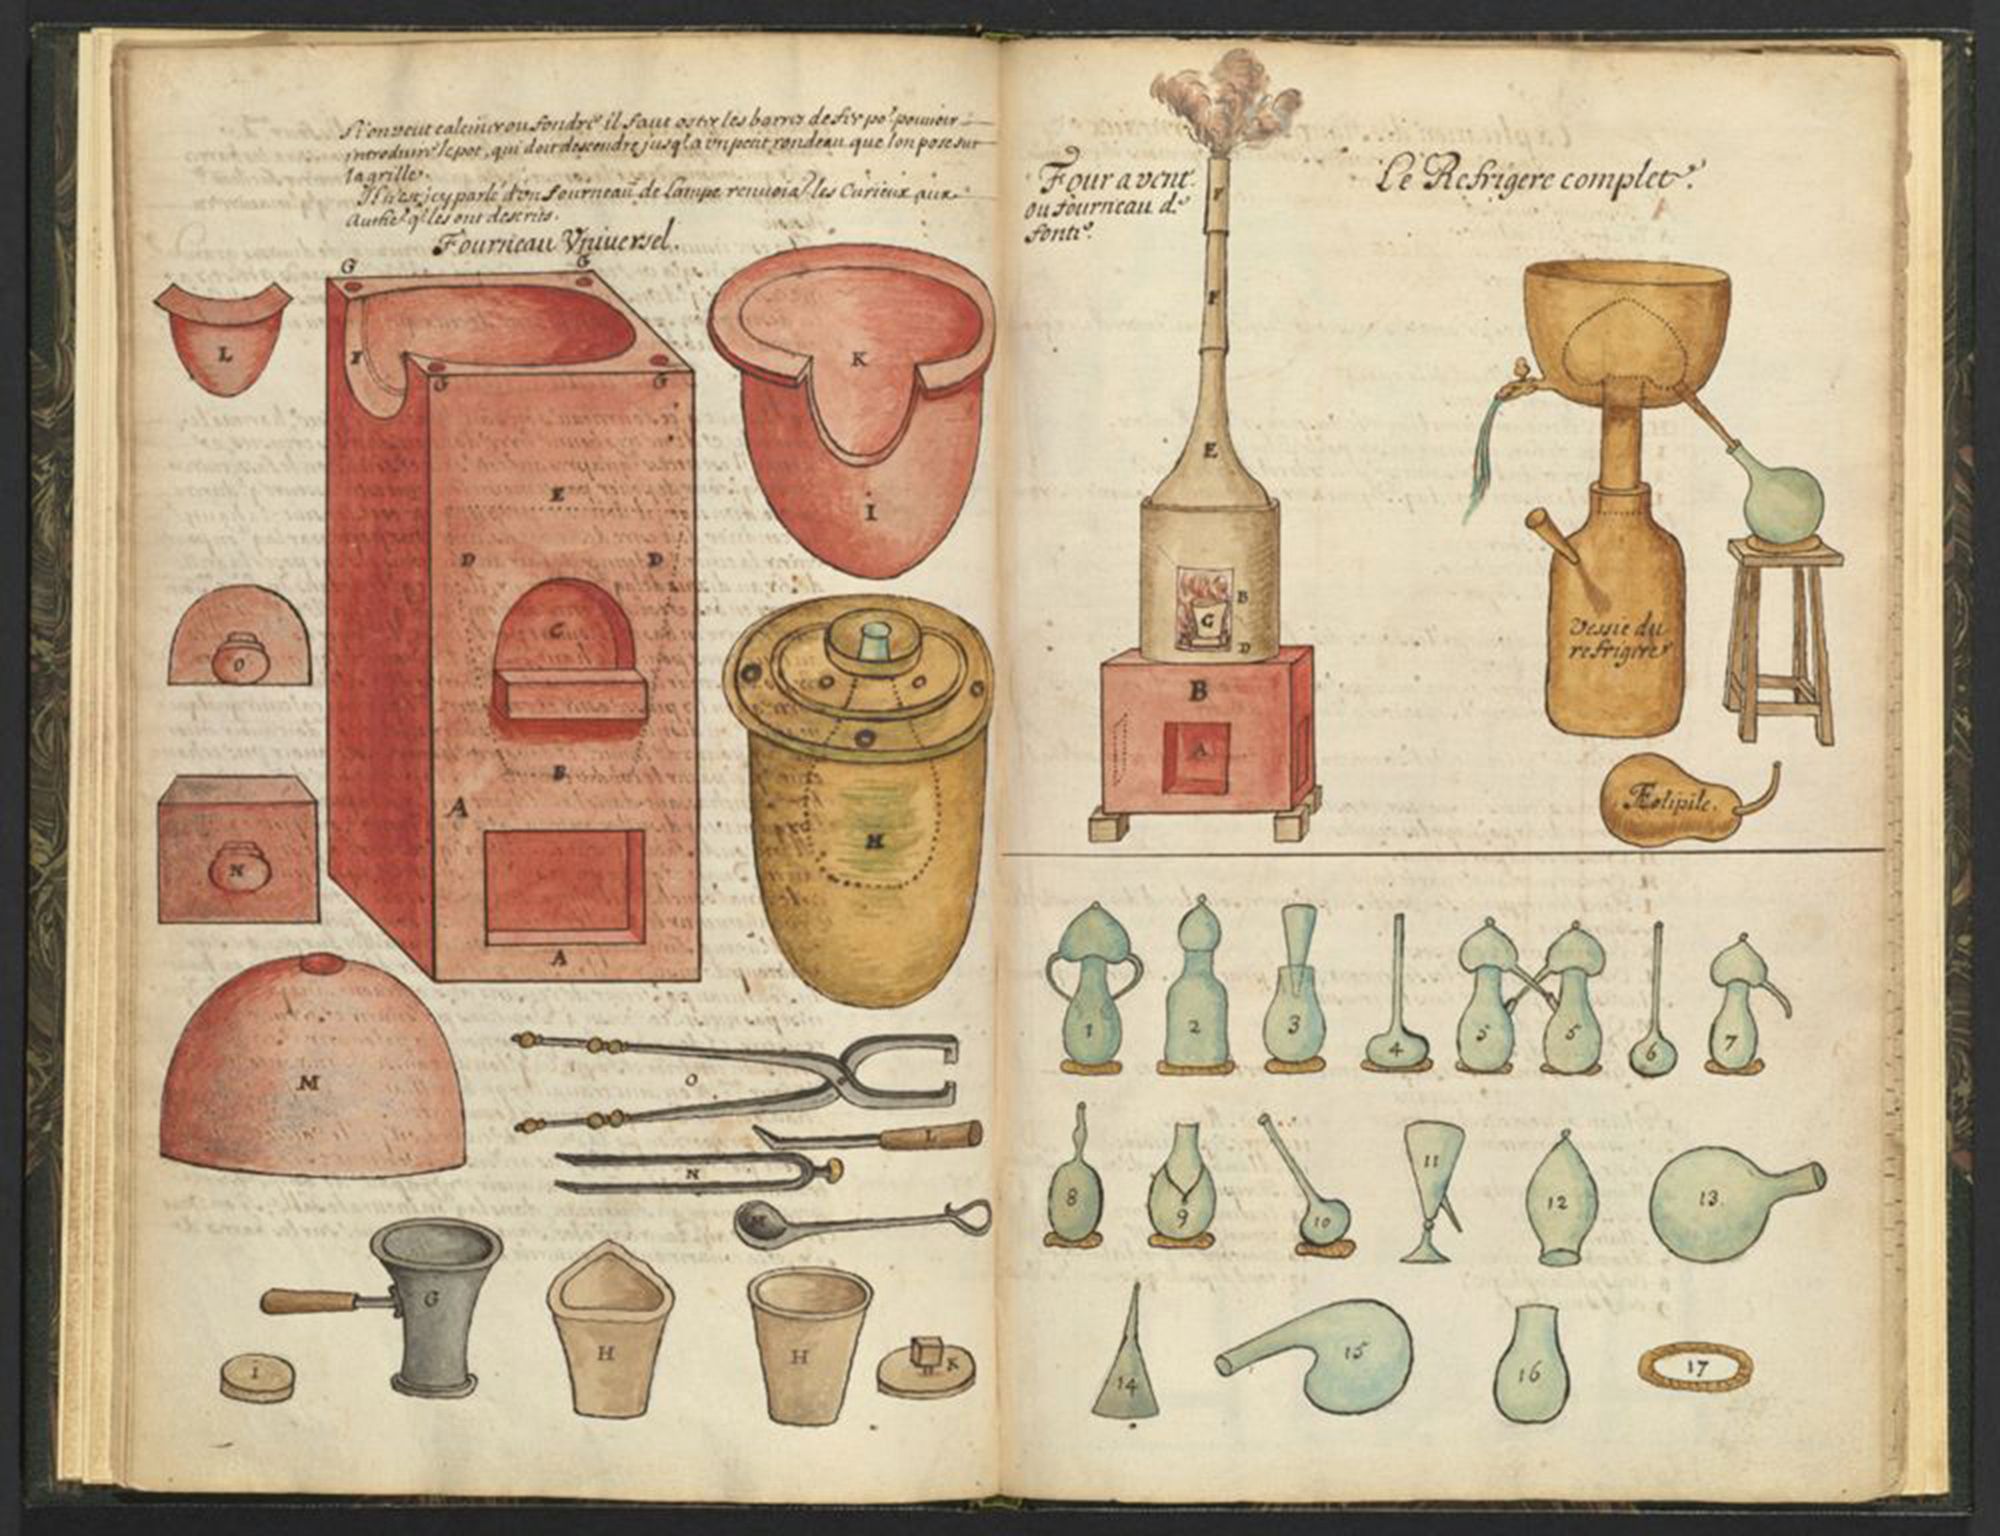 Si on veut calciner ou fondre il faut oster les barres de fer po.r pouvoir
introduire le pot, qui doit descendre jusq'a un petit rondeau que lon pose sur
la grille.
Il n'est icy parlé d'un fourneau de lampe renvoiat les Curieux aux
Auth.s q.i les ont descrits.
Fourneau Vniversel.
G
G
L
F
G
G
K
E
I
D
D
O
C
B
A
H
N
A
M
O
L
N
M
G
H
H
I
K
Four a vent
ou fourneau de
fonte.
Le Refrigere complet.
F
F
E
B
C
D
B
A
Vessie du
refrigere
Æolipile.
1
2
3
4
5
5
6
7
8
9
10
11
12
13.
14
15
16
17